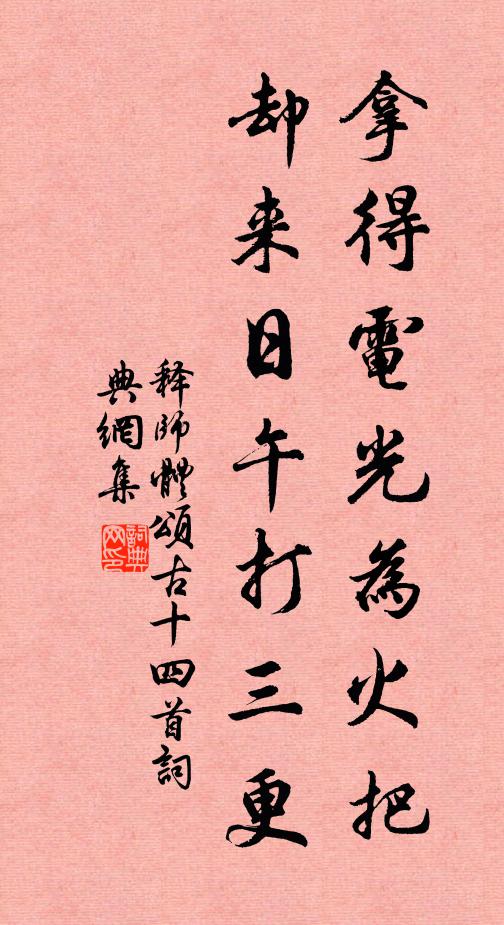 拿得電光為火把
却来日午打三更
释師體頌古十四首詞
典網集
詞典网印